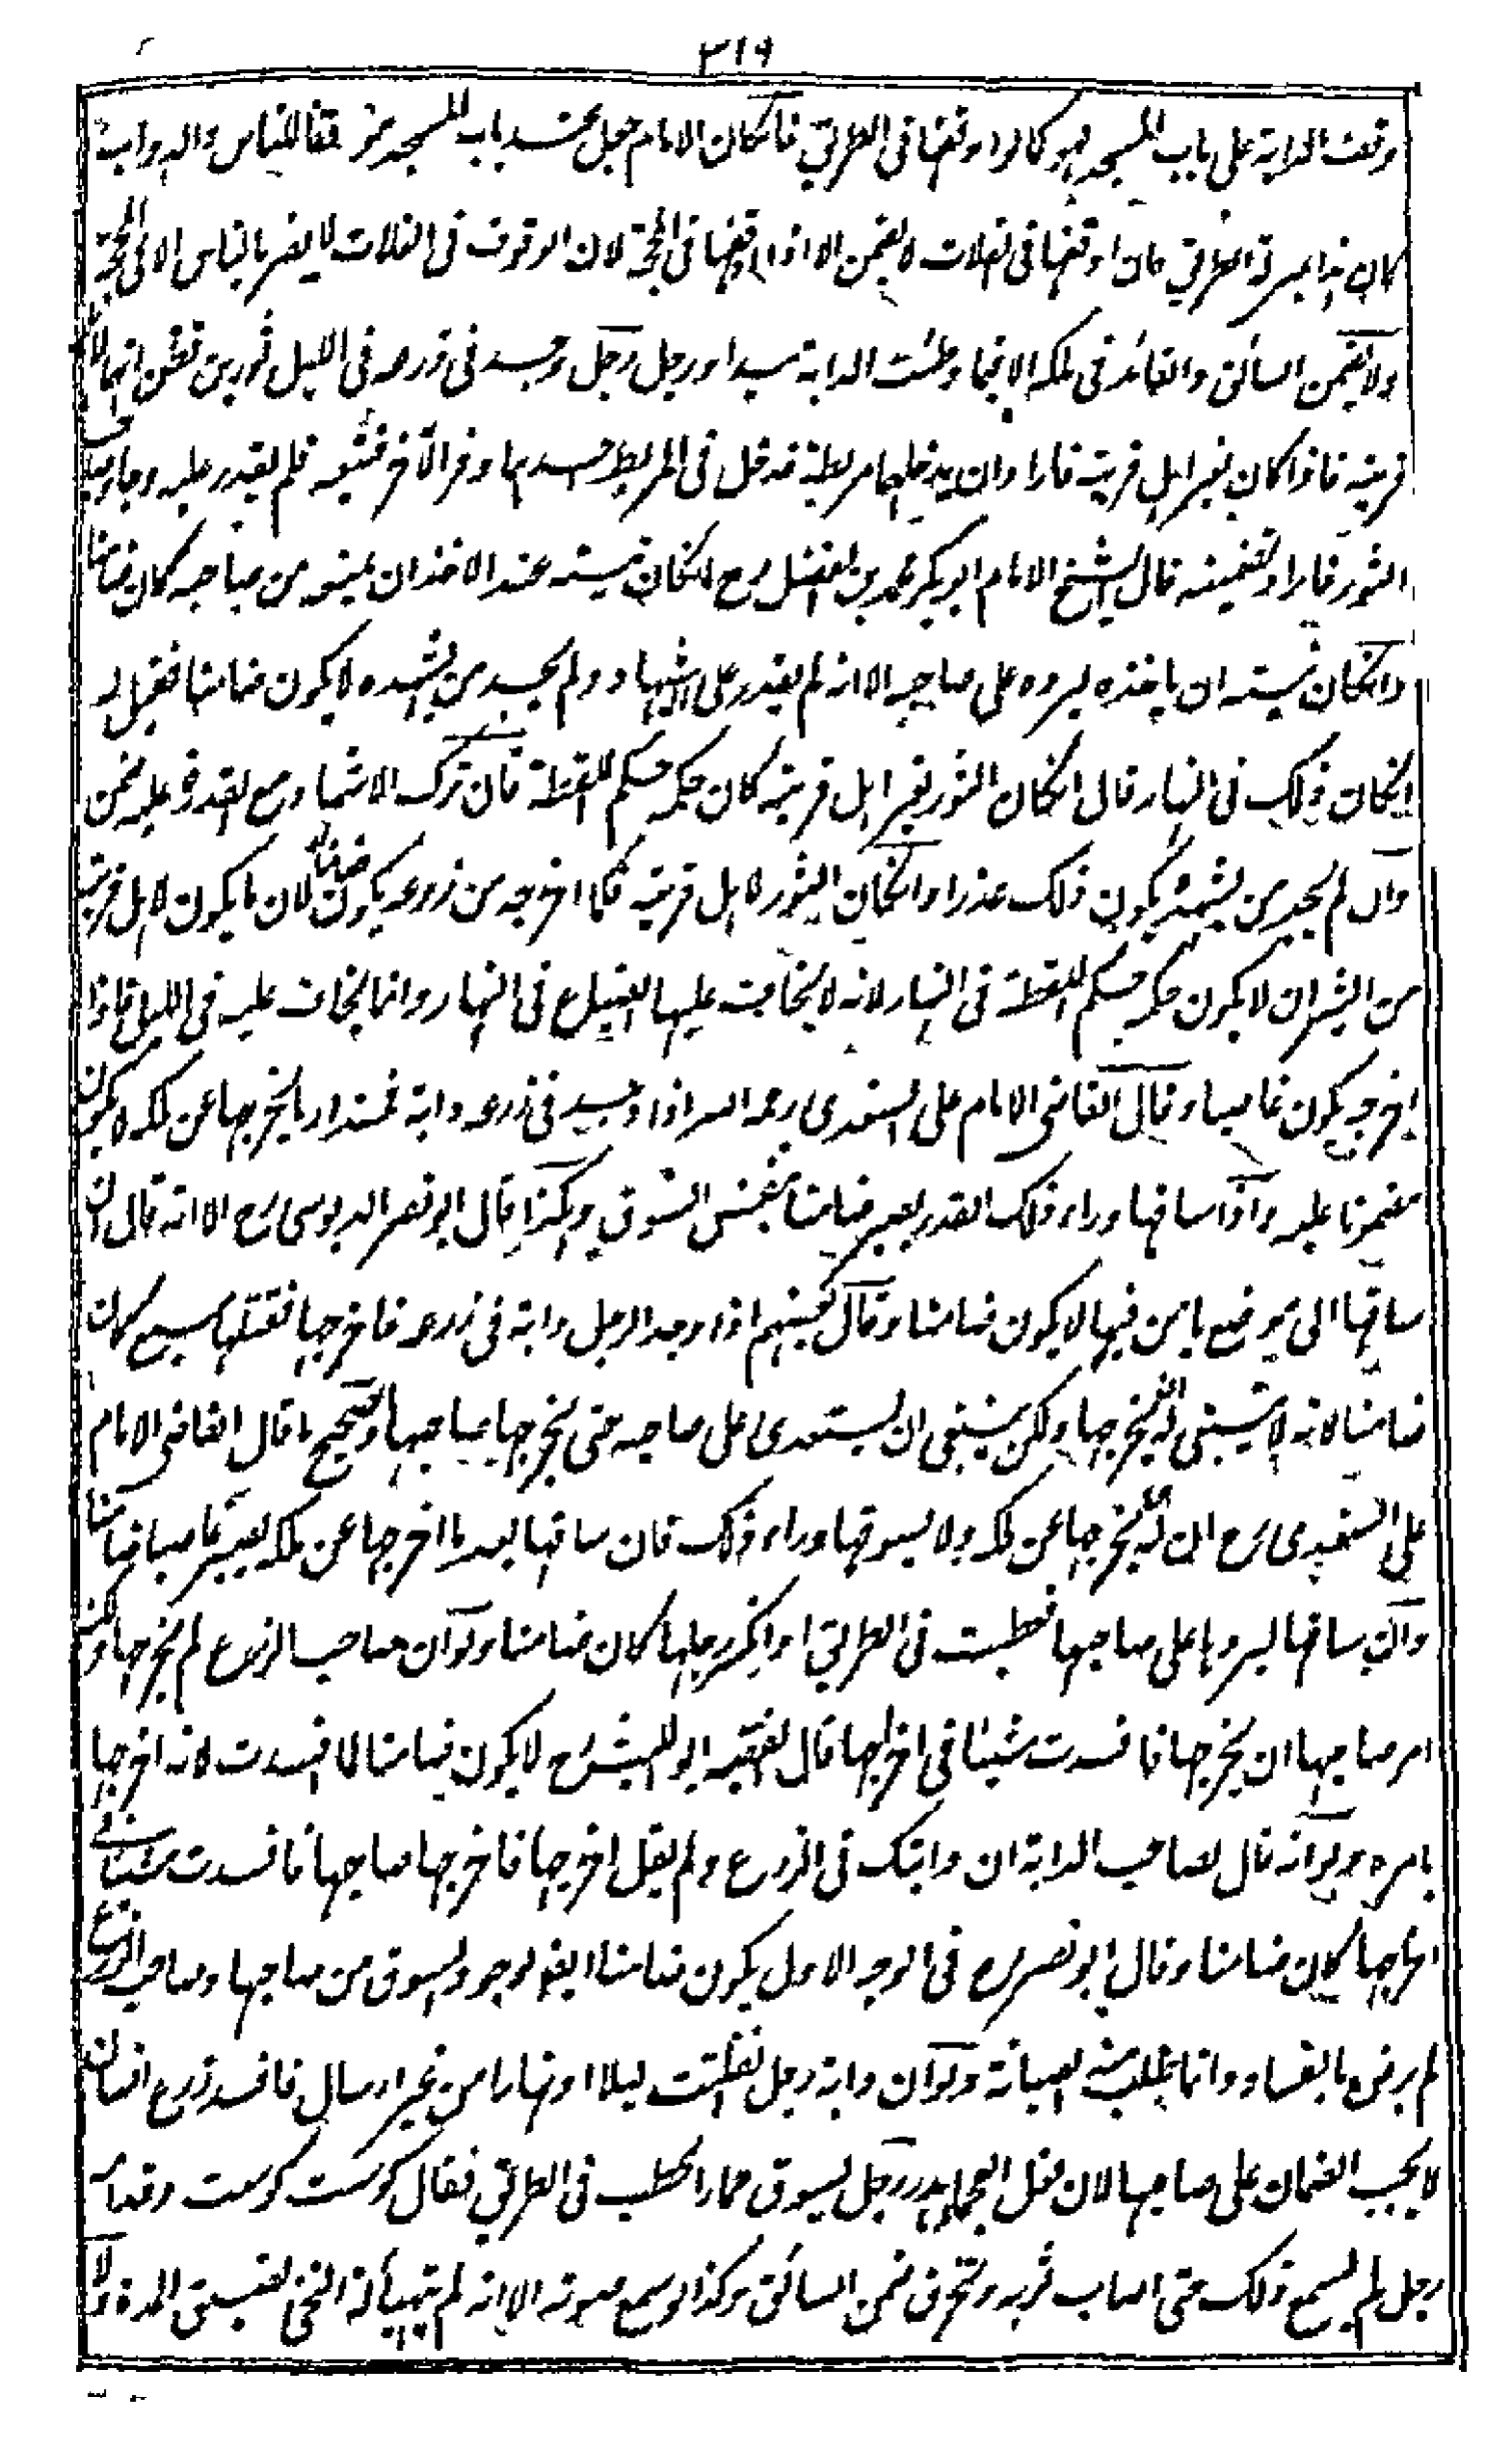 ٣١٩
وقف الدابة على باب المسجد فهو كما لو اوقفها فى الطريق فانكان الامام جعل عند باب المسجد موقفا للناس والدواب
كان هذا بمنزلة الطريق فان اوقفها فى الفلات لا يضمن الا اذا اوقفها فى المحجة لان الوقوف فى الفلات لا يضر بالناس الا فى المحجة
ولا يضمن السائق والقائد فى ملكه الا فيما وطئت الدابة بيد او رجل رجل وجد فى زرعه فى الليل ثورين فظن انهما لاهل
قريته فاذا كان لغير اهل قريته فاراد ان يدخلهما مربطه فدخل فى المربط احدهما وفر الآخر فتبعه فلم يقدر عليه وجاء صاحب
الثور فاراد تضمينه قال الشيخ الامام ابو بكر محمد بن الفضل رح انكان نيته عند الاخذ ان يمنعه من صاحبه كان ضامنا
وانكان نيته ان ياخذه ليرده على صاحبه الا انه لم يقدر على الاشهاد ولم يجد من يشهده لا يكون ضامنا فقيل له
انكان ذلك فى النهار قال انكان الثور لغير اهل قريته كان حكمه حكم اللقطة فان ترك الاشهاد مع القدرة عليه ضمن
وان لم يجد من يشهد يكون ذلك عذرا وانكان الثور لاهل قريته فكما اخرجه من زرعه يكون ضامنا لان ما يكون لاهل قريته
من الثيران لا يكون حكمه حكم اللقطة فى النهار لانه لا يخاف عليها الضياع فى النهار وانما يخاف عليه فى الليل فاذا
اخرجه يكون غاصبا وقال القاضى الامام على السغدى رحمه الله اذا وجد فى زرعه دابة فمقدار ما يخرجها عن ملكه لا يكون
مضمونا عليه واذا ساقها وراء ذلك القدر يصير ضامنا بنفس السوق وهكذا قال ابو نصر الدبوسى رح الا انه قال ان
ساقها الى موضع يامن فيها لا يكون ضامنا وقال بعضهم اذا وجد الرجل دابة فى زرعه فاخرجها فقتلها سبع كان
ضامنا لانه لا ينبغى له ان يخرجها ولكن ينبغى ان يستعدى على صاحبه حتى يخرجها صاحبها والصحيح ما قال القاضى الامام
على السغدى رح ان له ان يخرجها عن ملكه ولا يسوقها وراء ذلك فان ساقها بعد ما اخرجها عن ملكه يصير غاصبا ضامنا
وان ساقها ليردها على صاحبها فعطبت فى الطريق او انكسر رجلها كان ضامنا ولو ان صاحب الزرع لم يخرجها ولكن
امر صاحبها ان يخرجها فافسدت شيئا فى اخراجها قال الفقيه ابو الليث رح لا يكون ضامنا لما افسدت لانه اخرجها
بامره ولو انه قال لصاحب الدابة ان دابتك فى الزرع ولم يقل اخرجها فاخرجها صاحبها فافسدت شيئا فى
اخراجها كان ضامنا وقال ابو نصر رح فى الوجه الاول يكون ضامنا ايضا لوجود السوق من صاحبها وصاحب الزرع
لم يرض بالفساد وانما يطلب منه الصيانة ولو ان دابة رجل انفلتت ليلا او نهارا من غير ارسال فافسد زرع انسان
لا يجب الضمان على صاحبها لان فعل العجماء هدر رجل يسوق حمار الحطب فى الطريق فقال كوست كوست وقدامه
رجل لم يسمع ذلك حتى اصاب ثوبه وتخرق ضمن السائق وكذا لو سمع صوته الا انه لم يتهيأ له التنحى لضيق المدة ولا